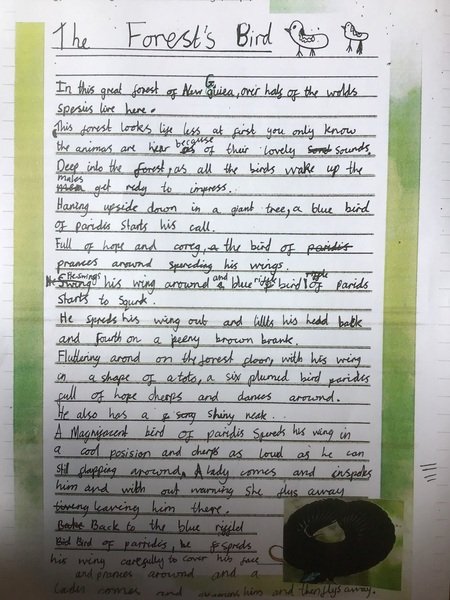 The Forest's Bird
In this great forest of New Guiea, over hals of the wolds
spesies live here.
This forest looks life less at first you only know
the animas are hear because of their lovely sounds.
Deep into the forest, as all the birds wake up the
males get redy to impress.
Haning upside down in a giant tree, a blue bird
of paridis starts his call.
Full of hope and coreg, a the bird of paridis
prances around spreding his wings.
He swings his wing around and blue riffle bird of parids
starts to squrk.
He spreds his wing out and tillts his hedd back
and fourth on a brown brank.
Fluttering arond on the forest floor, with his wing
in a shape of a toto, a six plumed bird paridies
full of hope cherps and dances around.
He also has a shiny neak.
A Magnifacent bird of paridis spreds his wing in
a cool posision and cherps as loud as he can
still flapping around, A lady comes and inspeks
him and with out warning she flys away
leaveing him there.
Back to the blue riggld
Bird of parridis, he spreds
his wing carefully to cover his face
and prances around and a
comes and him and then flys away.